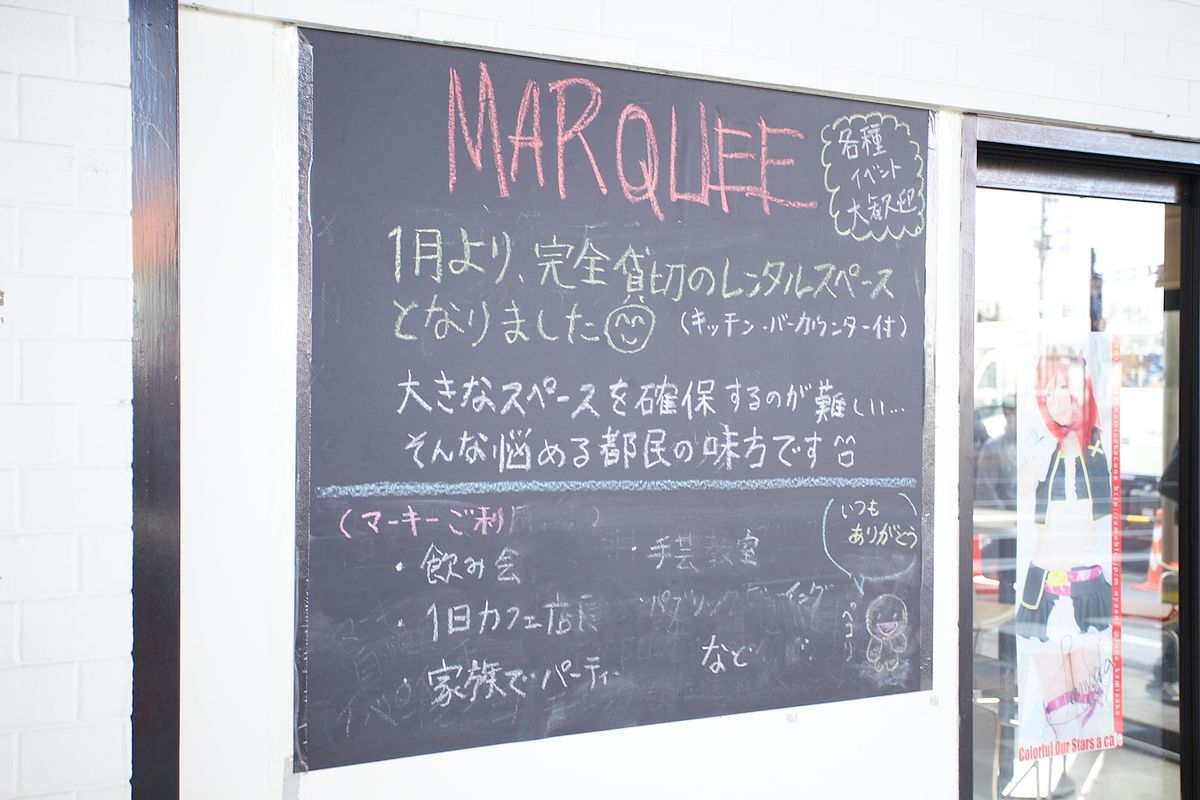 MARQUEE
各種
イベント
大歓迎
1月より、完全貸切のレンタルスペース
となりました
(キッチン・バーカウンター付)
大きなスペースを確保するのが難しい…
そんな悩める都民の味方です
(マーキーご利
・飲み会
・手芸教室
・1日カフェ店長
・家族でパーティ
など
いつも
ありがとう
ペコリ
Colorful Our Stars a cafe